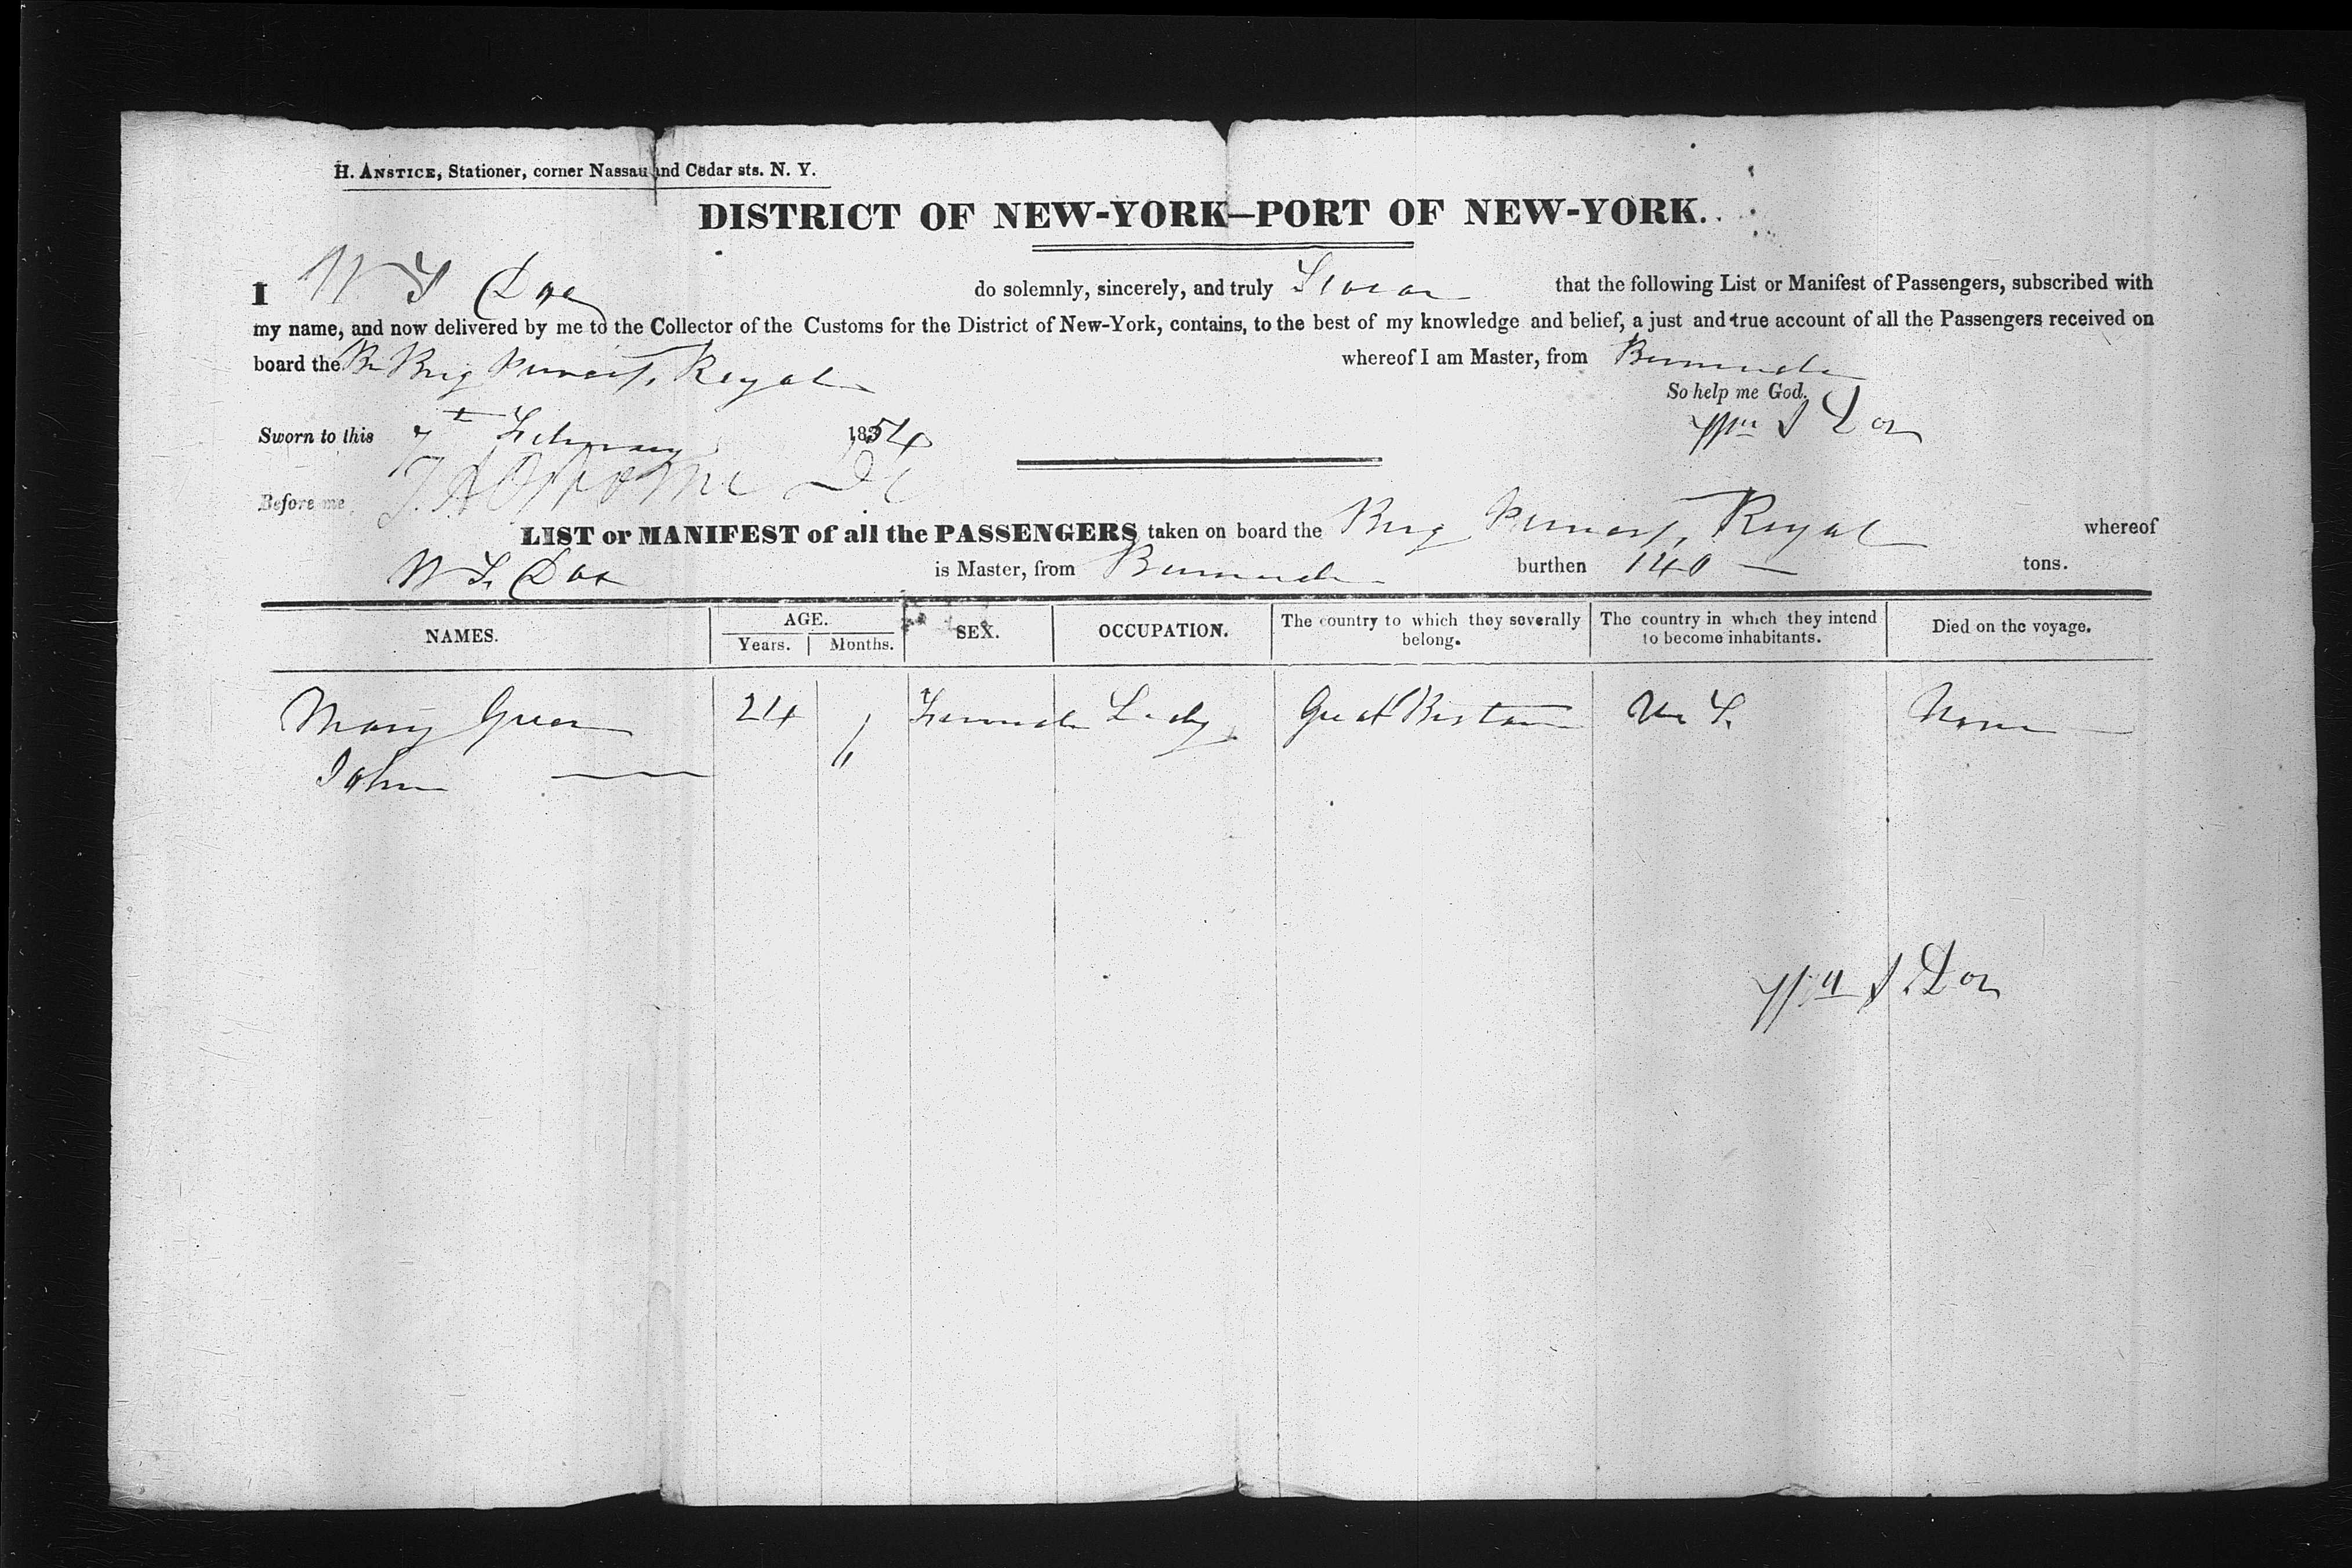 H. ANSTICE, Stationer, corner Nassau and Cedar sts. N. Y.
DISTRICT OF NEW-YORK—PORT OF NEW-YORK.
I W S Doe do solemnly, sincerely, and truly Swear that the following List or Manifest of Passengers, subscribed with
my name, and now delivered by me to the Collector of the Customs for the District of New-York, contains, to the best of my knowledge and belief, a just and true account of all the Passengers received on
board the Br Brig Princess Royal whereof I am Master, from Bermuda
So help me God.
Sworn to this 7th February 1854
Wm S Doe
Before me,
LIST or MANIFEST of all the PASSENGERS taken on board the Brig Princess Royal whereof
W S. Doe is Master, from Bermuda burthen 140 — tons.
NAMES. AGE. Years. Months. SEX. OCCUPATION. The country to which they severally belong. The country in which they intend to become inhabitants. Died on the voyage.
Mary Green 24 " Female Lady Great Britain U. S. None
John — "
Wm S. Doe